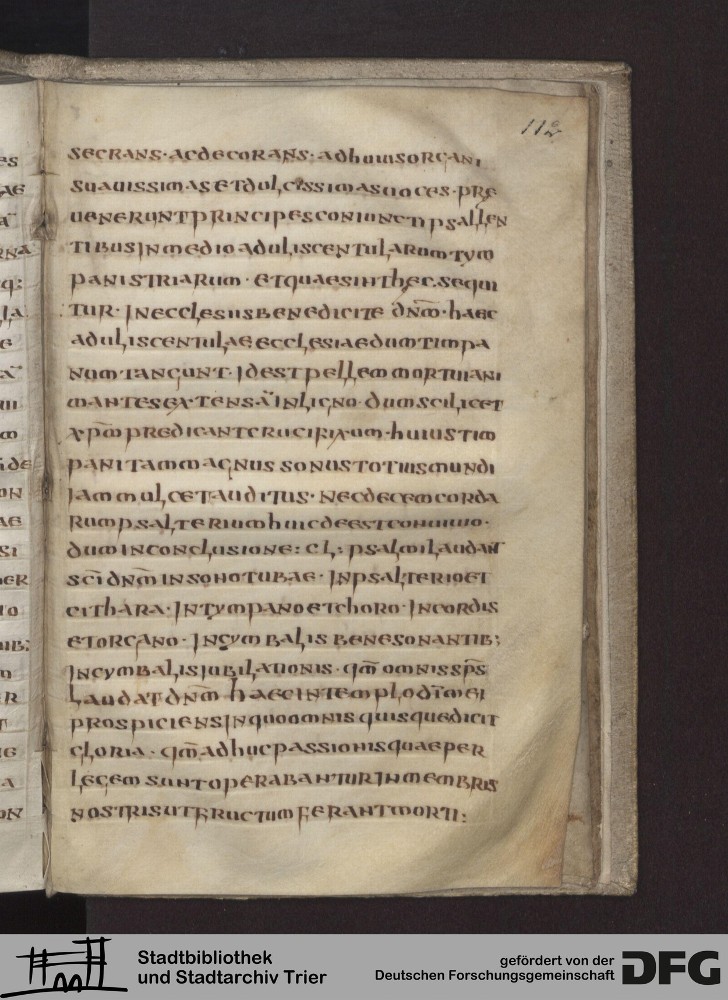 112
secrans · ac decorans · ad huius organi
suauissimas et dulcissimas uoces · pre
uenerunt principes coniuncti psallen
tibus in medio aduliscentularum tym
panistriarum · et quae sint hec sequi
tur · In ecclesiis benedicite dn̄m · haec
aduliscentulae ecclesiae dum timpa
num tangunt · Id est pellem mortui ani
mantes extensā in ligno · dum scilicet
xp̄m predicant crucifixum · huius tim
pani tam magnus sonus totius mundi
Iam mulcet auditus · nec decem corda
rum psalterium huic deest conuiuio ·
dum in conclusione : cl : psalmi laudant
sc̄i dn̄m in sono tubae · In psalterio et
cithara · In tympano et choro · In cordis
et organo · In cymbalis bene sonantib;
In cymbalis iubilationis · qm̄ omnis sp̄s
laudat dn̄m haec in templo dī mei
prospiciens In quo omnis quisque dicit
gloria · qm̄ ad huc passionis quae per
legem sunt operabantur In membris
nostris ut fructum ferant morti :
es
ae
rna
q:
la
e
ide
on
ae
si
er
io
uib;
r
t
a
on
Stadtbibliothek
und Stadtarchiv Trier
gefördert von der
Deutschen Forschungsgemeinschaft
DFG